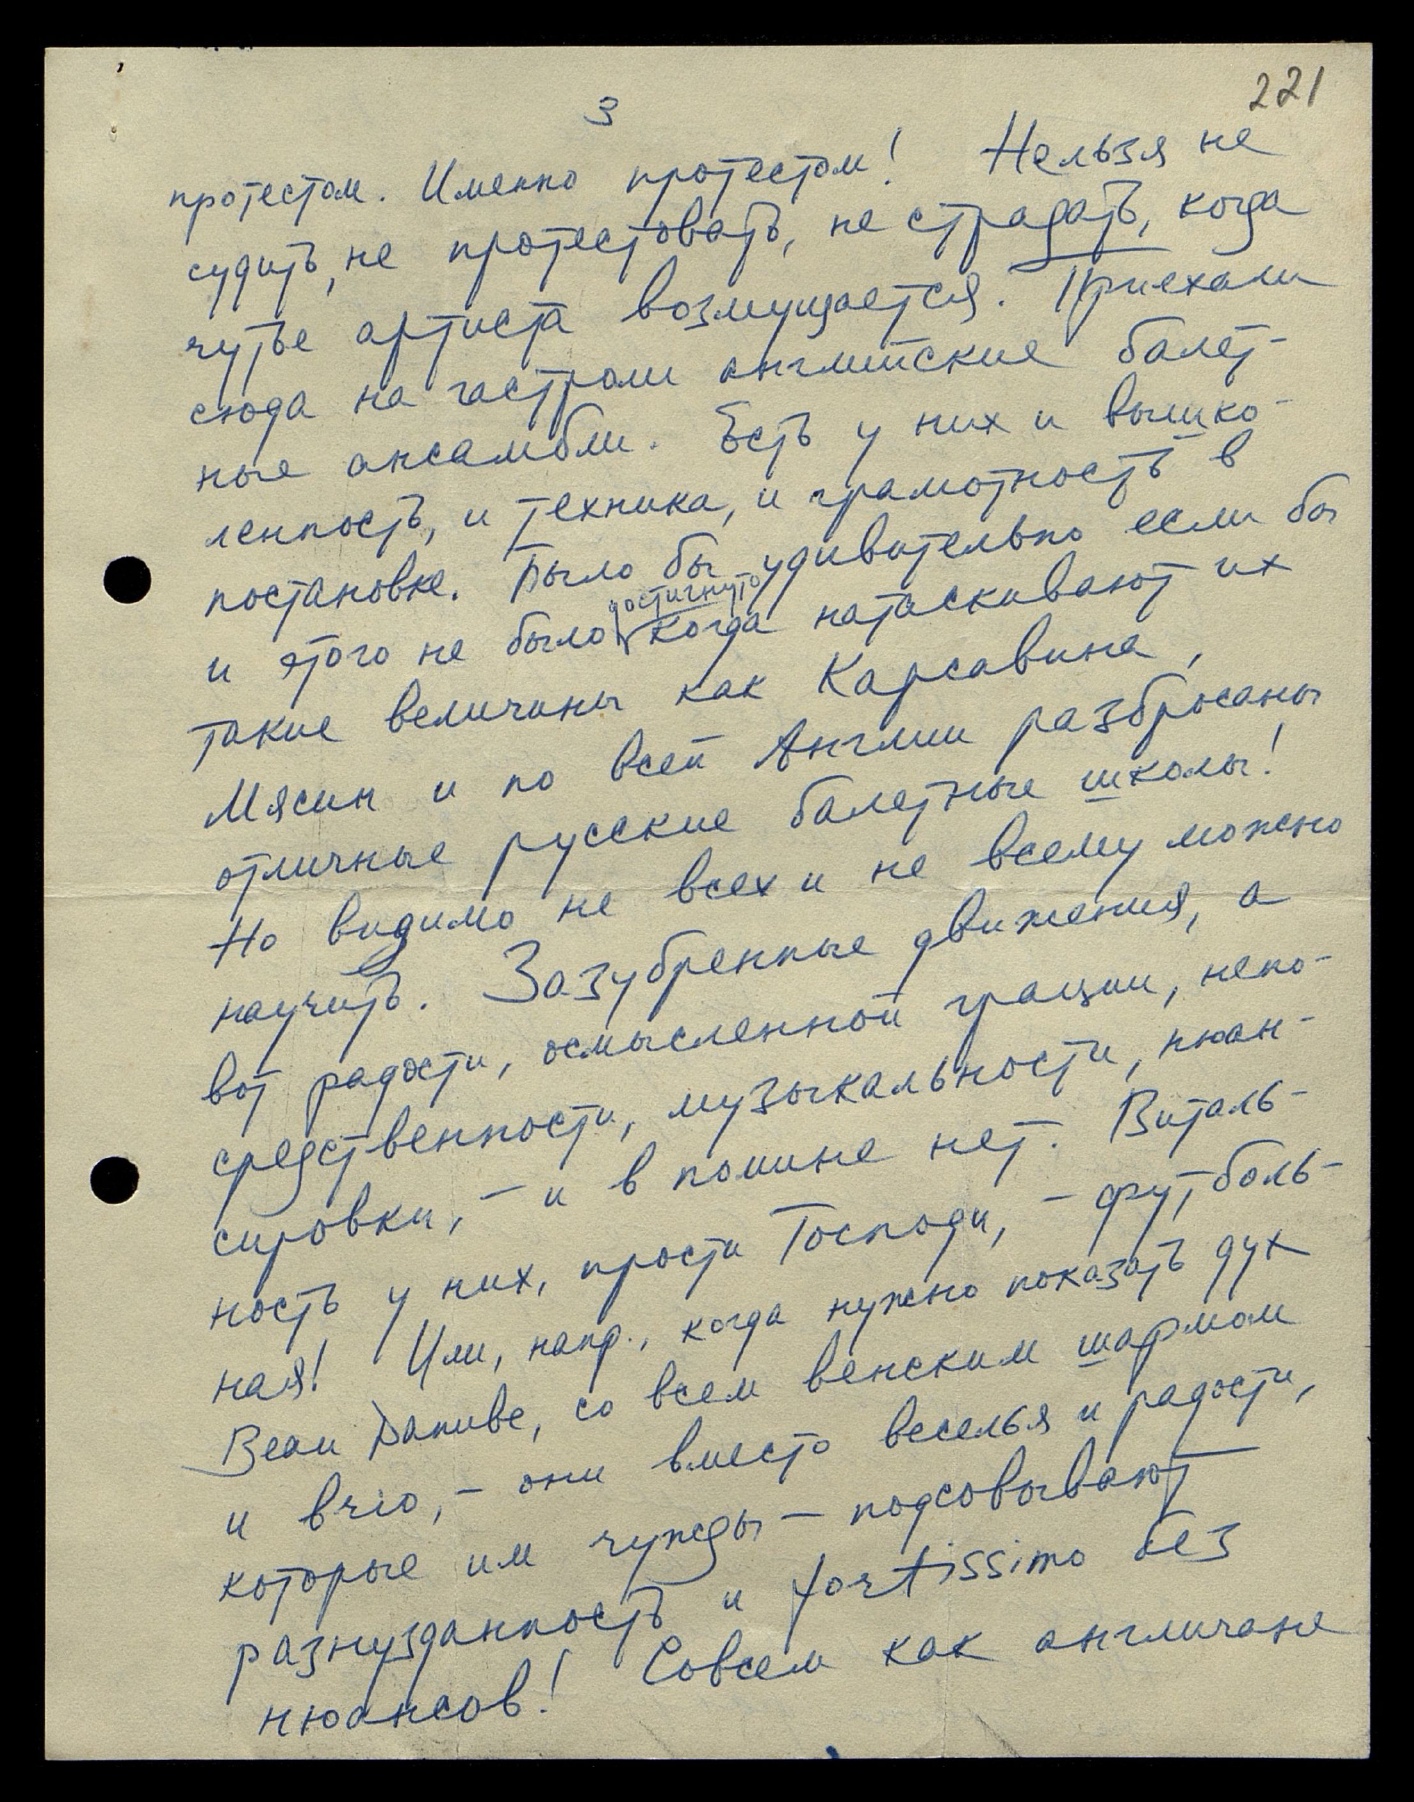 221
3
протестом. Именно протестом! Нельзя не
судить, не протестовать, не страдать, когда
чутье артиста возмущается. Приехали
сюда на гастроли английские балет-
ные ансамбли. Есть у них и вышко-
ленность, и техника, и грамотность в
постановке. Было бы удивительно если бы
и этого не было достигнуто когда натаскивают их
такие величины как Карсавина,
Мясин и по всей Англии разбросаны
отличные русские балетные школы!
Но видимо не всех и не всему можно
научить. Зазубренные движения, а
вот радости, осмысленной грации, непо-
средственности, музыкальности, нюан-
сировки, – и в помине нет. Виталь-
ность у них, прости Господи, – футболь-
ная! Или, напр., когда нужно показать дух
Beau Danube, со всем венским шармом
и brio, – они вместо веселья и радости,
которые им чужды – подсовывают
разнузданность и fortissimo без
нюансов! Совсем как англичане